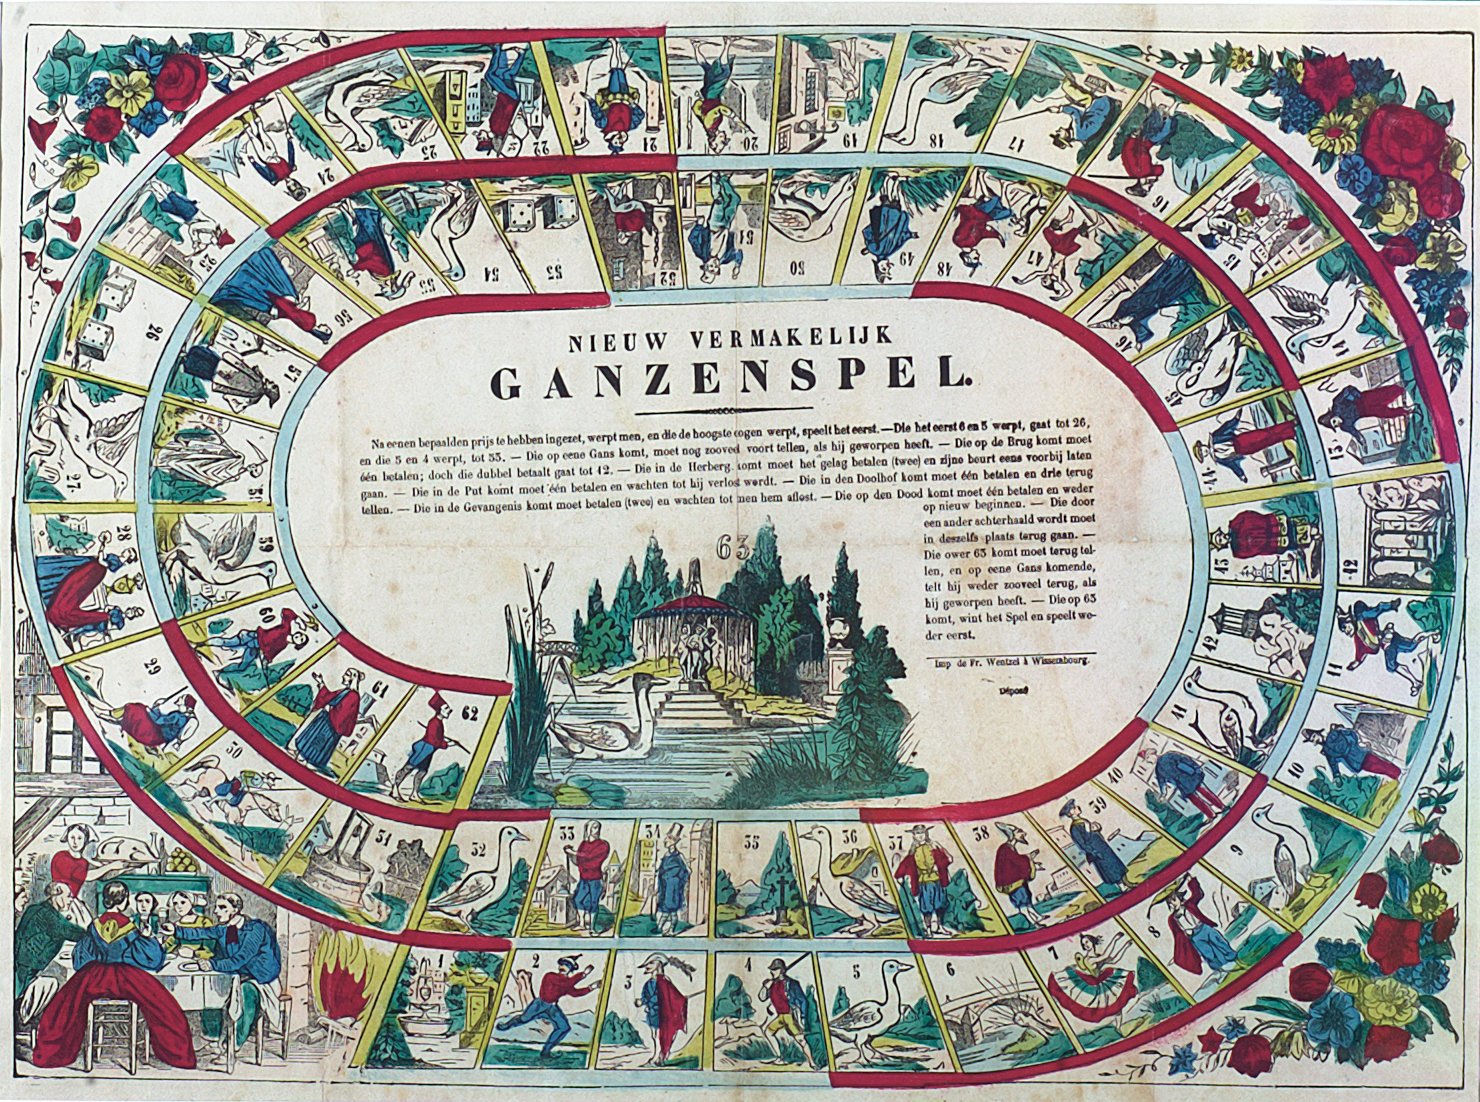 NIEUW VERMAKELIJK
GANZENSPEL.
Na eenen bepaalden prijs te hebben ingezet, werpt men, en die de hoogste oogen werpt, speelt het eerst. — Die het eerst 6 en 3 werpt, gaat tot 26,
en die 5 en 4 werpt, tot 53. — Die op eene Gans komt, moet nog zooveel voort tellen, als hij geworpen heeft. — Die op de Brug komt moet
één betalen; doch die dubbel betaalt gaat tot 12. — Die in de Herberg komt moet het gelag betalen (twee) en zijne beurt eens voorbij laten
gaan. — Die in de Put komt moet één betalen en wachten tot hij verlost wordt. — Die in den Doolhof komt moet één betalen en drie terug
tellen. — Die in de Gevangenis komt moet betalen (twee) en wachten tot men hem aflost. — Die op den Dood komt moet één betalen en weder
op nieuw beginnen. — Die door
een ander achterhaald wordt moet
in deszelfs plaats terug gaan. —
Die ower 63 komt moet terug tel-
len, en op eene Gans komende,
telt hij weder zooveel terug, als
hij geworpen heeft. — Die op 63
komt, wint het Spel en speelt we-
der eerst.
Imp de Fr. Wentzel à Wissembourg.
Déposé
1
2
3
4
5
6
7
8
9
10
11
12
13
14
15
16
17
18
19
20
21
22
23
24
25
26
27
28
29
30
31
32
33
34
35
36
37
38
39
40
41
42
43
44
45
46
47
48
49
50
51
52
53
54
55
56
57
58
59
60
61
62
63